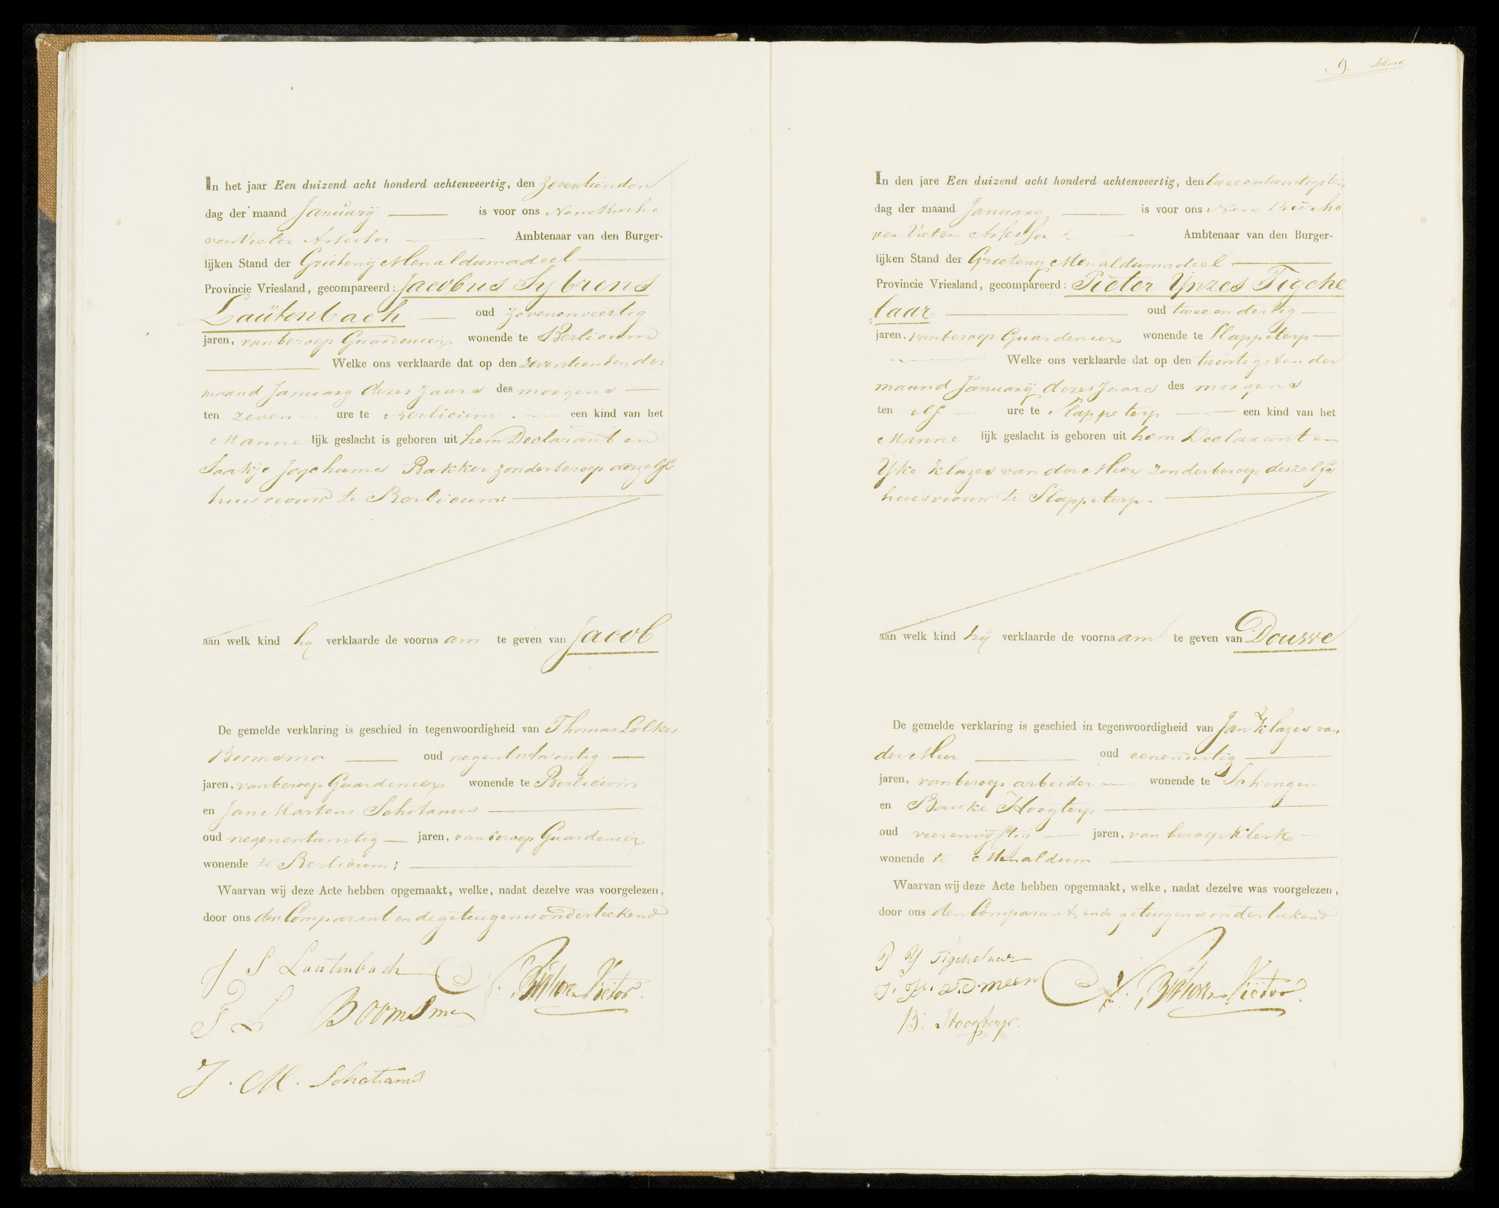 In het jaar Een duizend acht honderd achtenveertig, den zeventienden
dag der maand Januarij is voor ons
Ambtenaar van den Burger-
lijken Stand der Grietenij Menaldumadeel
Provincie Vriesland, gecompareerd: Jacobus Sybrens
Lautenbach oud zevenenveertig
jaren, van beroep Gardenier wonende te Berlicum
Welke ons verklaarde dat op den zeventienden der
maand Januarij dezes jaars des morgens
ten zeven ure te Berlicum een kind van het
Manne lijk geslacht is geboren uit hem Declarant en
Jogchums Bakker zonder beroep deszelfs
huisvrouw te Berlicum
aan welk kind hij verklaarde de voorna am te geven van Jacob
De gemelde verklaring is geschied in tegenwoordigheid van Thomas Lolkes
Boomsma oud negenentwintig
jaren, van beroep Gardenier wonende te Berlicum
en Jan Martens Schotanus
oud negenentwintig jaren, van beroep Gardenier
wonende te Berlicum;
Waarvan wij deze Acte hebben opgemaakt, welke, nadat dezelve was voorgelezen,
door ons den Comparant en de getuigen is onderteekend
J S Lautenbach
T L Boomsma
J. M. Schotanus
9
In den jare Een duizend acht honderd achtenveertig, den tweeentwintigsten
dag der maand Januarij is voor ons
Ambtenaar van den Burger-
lijken Stand der Grietenij Menaldumadeel
Provincie Vriesland, gecompareerd: Pieter IJnzes Tigche
laar oud tweeendertig
jaren, van beroep Gardenier wonende te Slappeterp
Welke ons verklaarde dat op den twintigsten der
maand Januarij dezes jaars des morgens
ten elf ure te Slappeterp een kind van het
Manne lijk geslacht is geboren uit hem Declarant en
IJke Klazes van der Meer zonder beroep deszelfs
huisvrouw te Slappeterp.
aan welk kind hij verklaarde de voorna am te geven van Douwe
De gemelde verklaring is geschied in tegenwoordigheid van Jan Klazes van
der Meer oud eenendertig
jaren, van beroep arbeider wonende te Schingen
en Bauke Hoogterp
oud vierenvijftig jaren, van beroep Klerk
wonende te Menaldum
Waarvan wij deze Acte hebben opgemaakt, welke, nadat dezelve was voorgelezen,
door ons den Comparant, en de getuigen is onderteekend
P IJ Tigchelaar
B. Hoogterp.